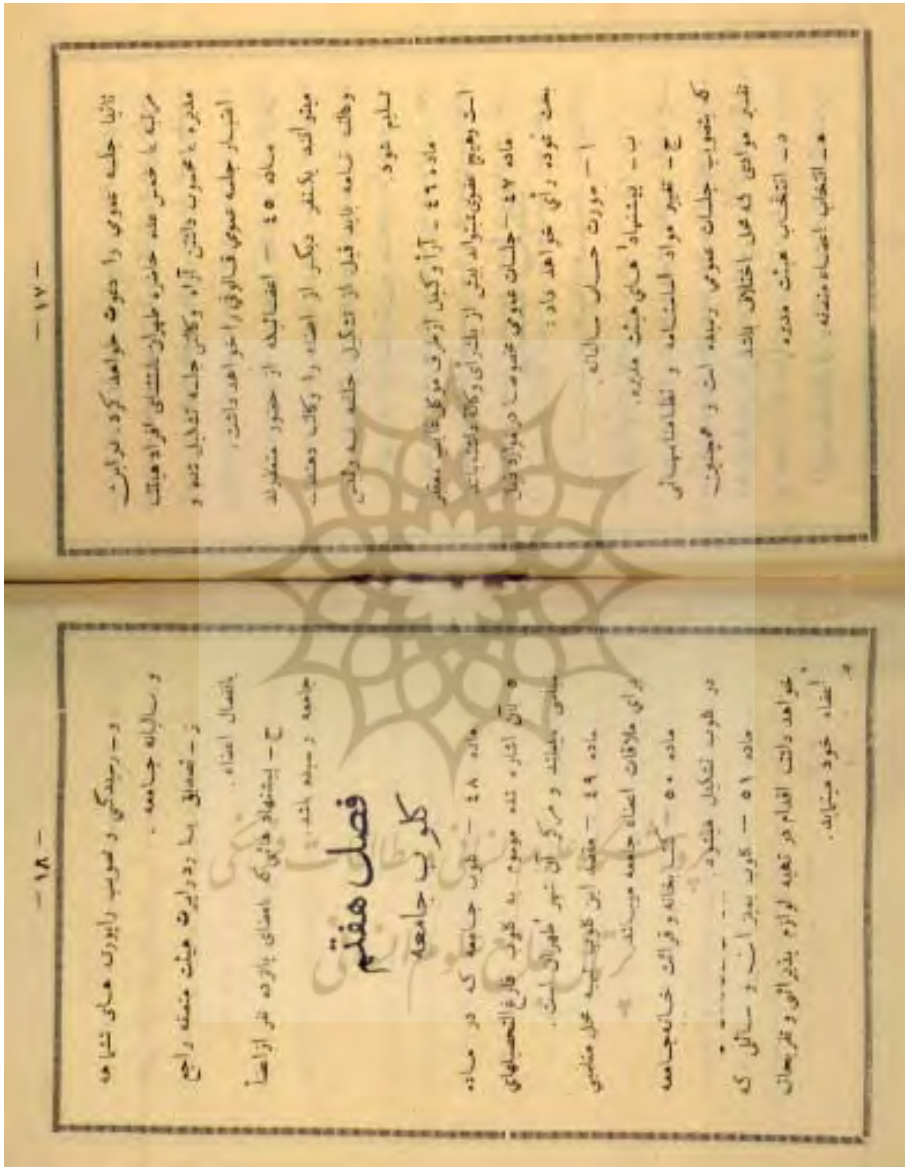 - ۱۷ -
ثانیاً جلسه عمومی را دعوت خواهد کرد، در این
مرتبه با خمس عده حاضره طهران باستثنای افراد هیئت
مدیره با محسوب داشتن آراء وکالتی جلسه تشکیل شده و
اختیار جلسه عمومی قانونی را خواهد داشت.
ماده ۴۵ - اعضائیکه از حضور معذورند
میتوانند یکنفر دیگر از اعضاء را وکالت دهند
وکالت نامه باید قبل از تشکیل جلسه به رئیس
تسلیم شود.
ماده ۴۶ - آراء وکیل از طرف موکل غایب معتبر
است وهیچ عضوی نمیتواند بیش از یک رأی وکالة داشته باشد
ماده ۴۷ - جلسات عمومی مخصوصاً در موارد ذیل
بحث نموده رأی خواهد داد:
ا - صورت حساب سالیانه.
ب - پیشنهاد های هیئت مدیره.
ج - تغییر مواد اساسنامه و نظامنامهائی
که بتصویب جلسات عمومی رسیده است و همچنین
تفسیر موادی که محل اختلاف باشد
د - انتخاب هیئت مدیره
هـ - انتخاب اعضاء منصفه.
- ۱۸ -
و - رسیدگی و تصویب راپورت های ششماهه
و سالیانه جامعه.
ز - تصدیق یا رد راپرت هیئت منصفه راجع
بانفصال اعضاء.
ح - پیشنهاد هائی که بامضای یازده نفر از اعضاء
جامعه رسیده باشد.
فصل هفتم
کلوب جامعه
ماده ۴۸ - کلوب جامعه که در ماده
۵ آن اشاره شده موسوم به کلوب فارغ التحصیلهای
میباشد و مرکز آن شهر طهران است.
ماده ۴۹ - مقصد این کلوب تهیه محل مناسبی
برای ملاقات اعضاء جامعه میباشد
ماده ۵۰ - کتابخانه و قرائت خانه جامعه
در کلوب تشکیل میشود.
ماده ۵۱ - کلوب بمیزان و سائلی که
خواهد داشت اقدام در تهیه لوازم پذیرائی و تفریحات
اعضاء خود مینماید.
پژوهشگاه علوم انسانی و مطالعات فرهنگی
پرتال جامع علوم انسانی